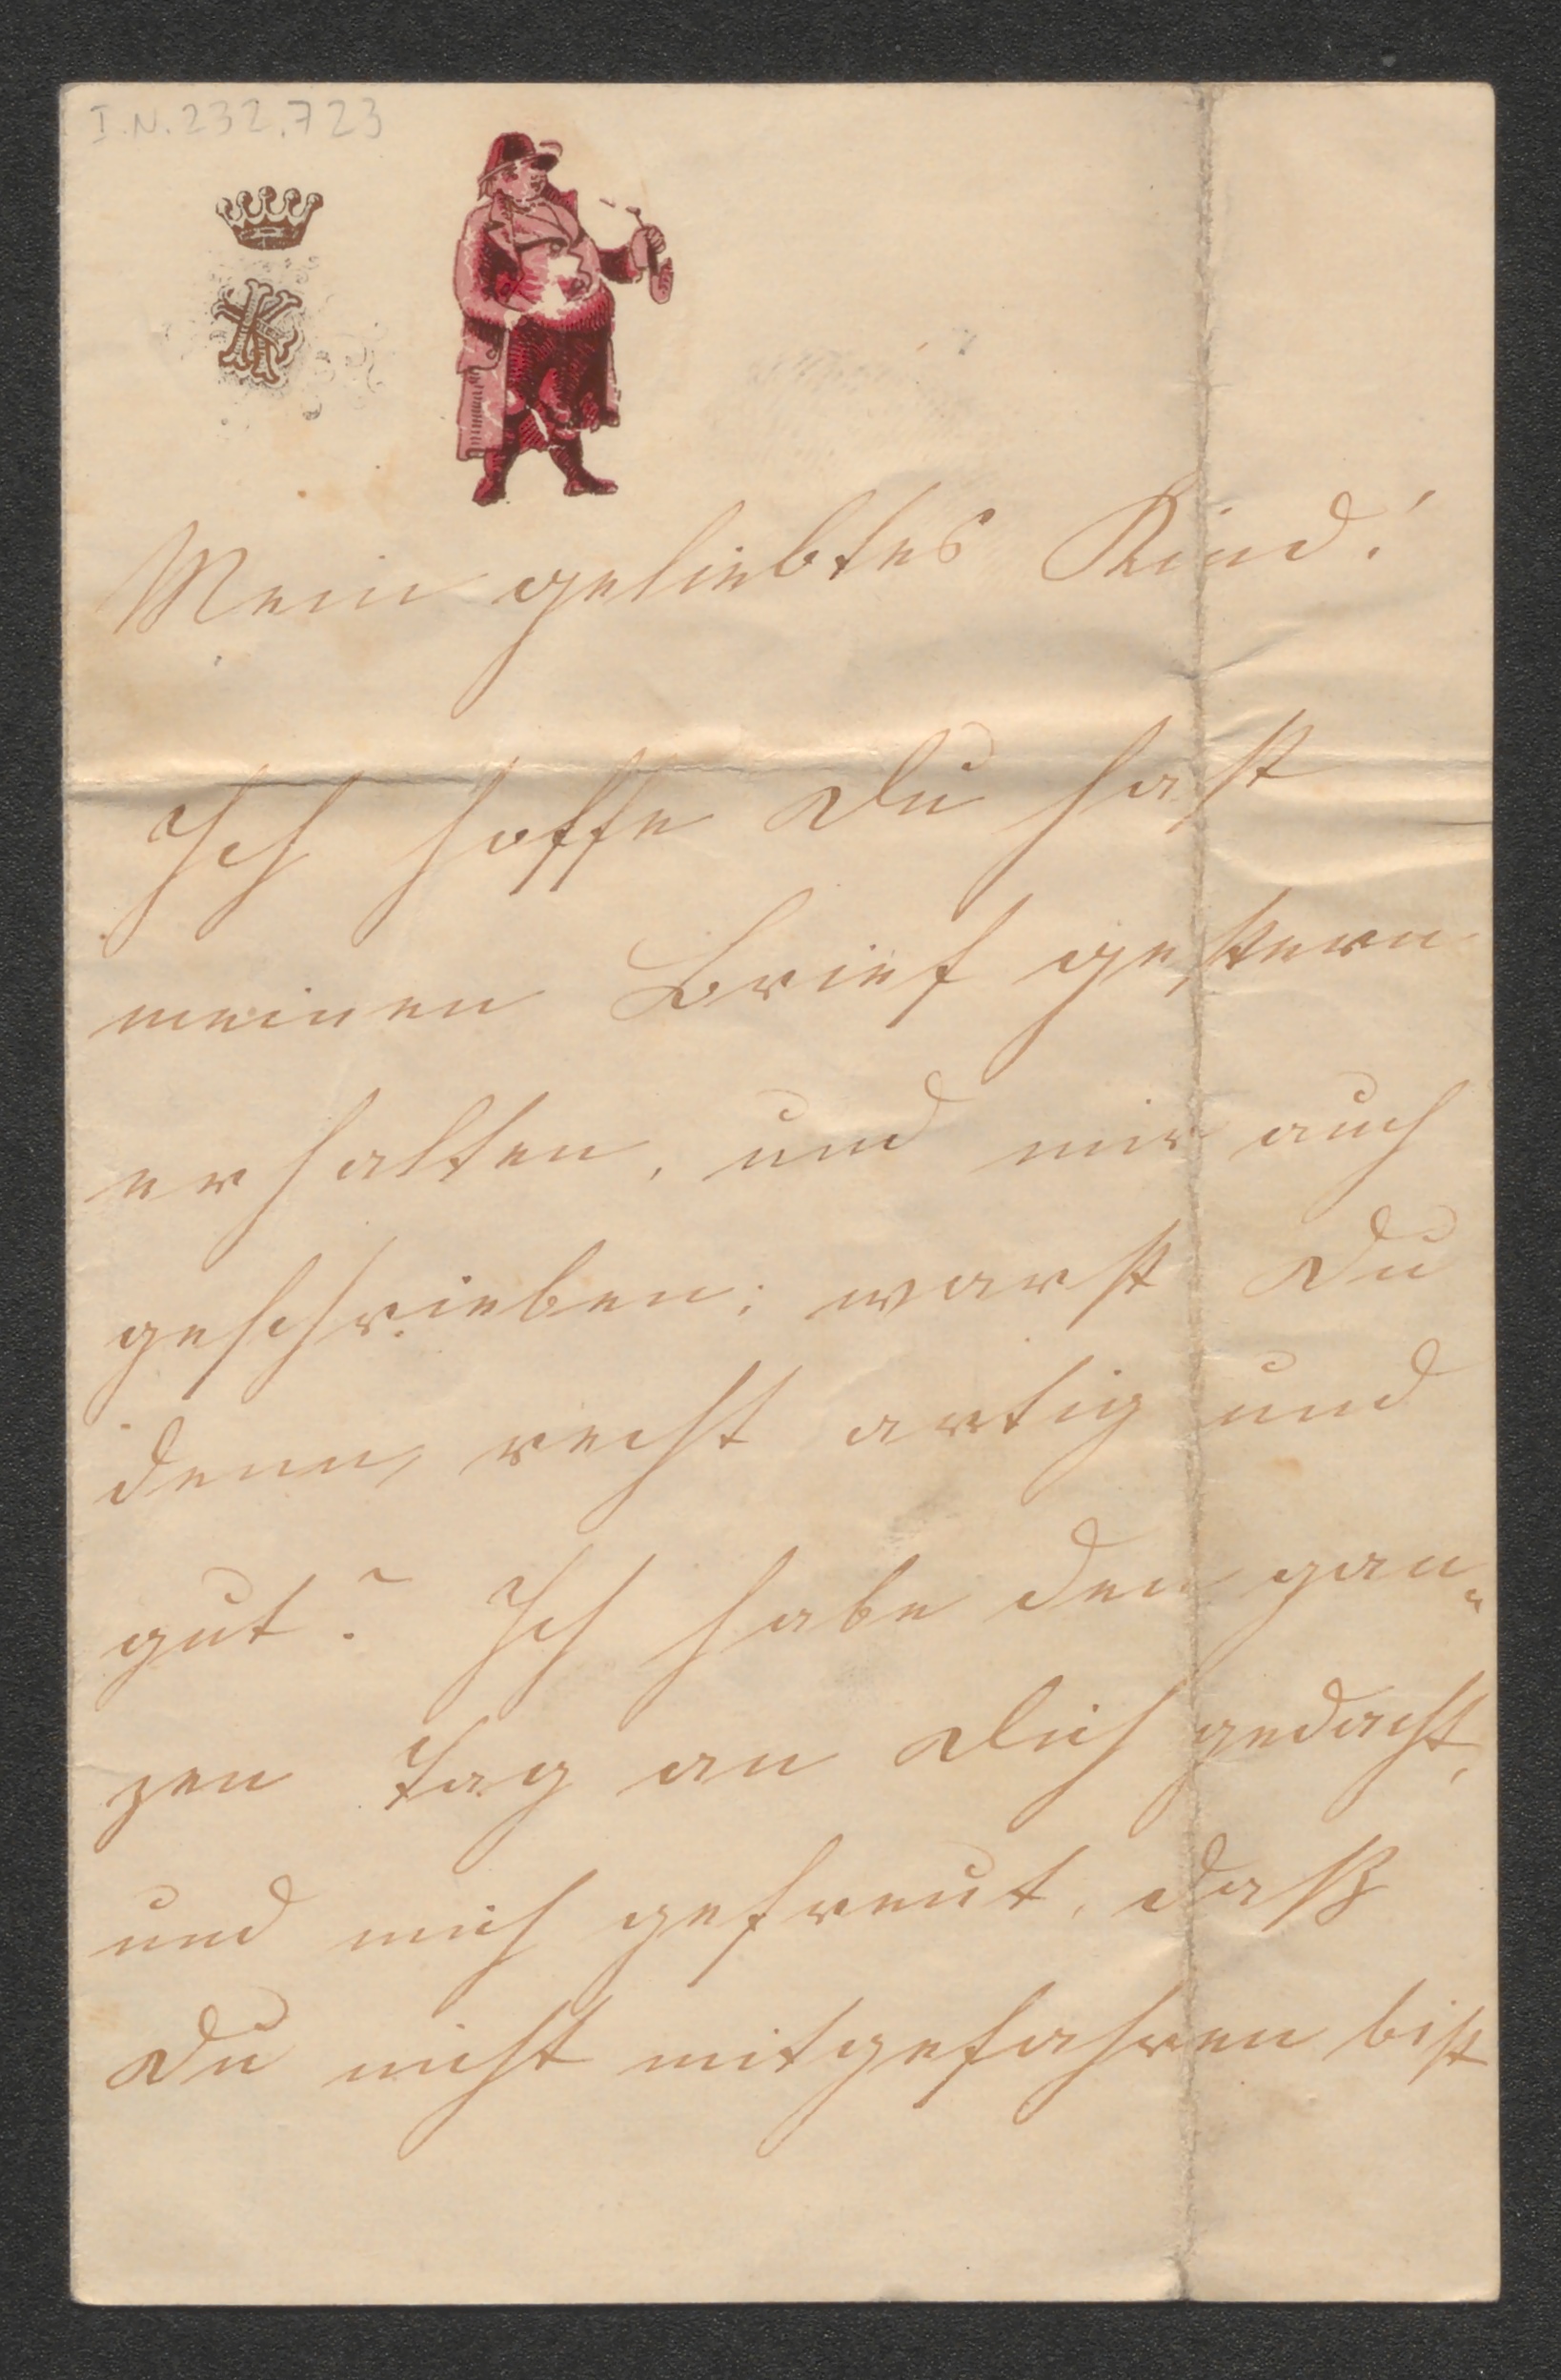 I.N. 232.723
Mein geliebtes Kind!
Ich hoffe Du hast
meinen Brief gestern
erhalten, und mir auch
geschrieben; warst Du
denn, recht artig und
gut? Ich habe den gan„
zen Tag an Dich gedacht,
und mich gefreut, daß
Du nicht mitgefahren bist